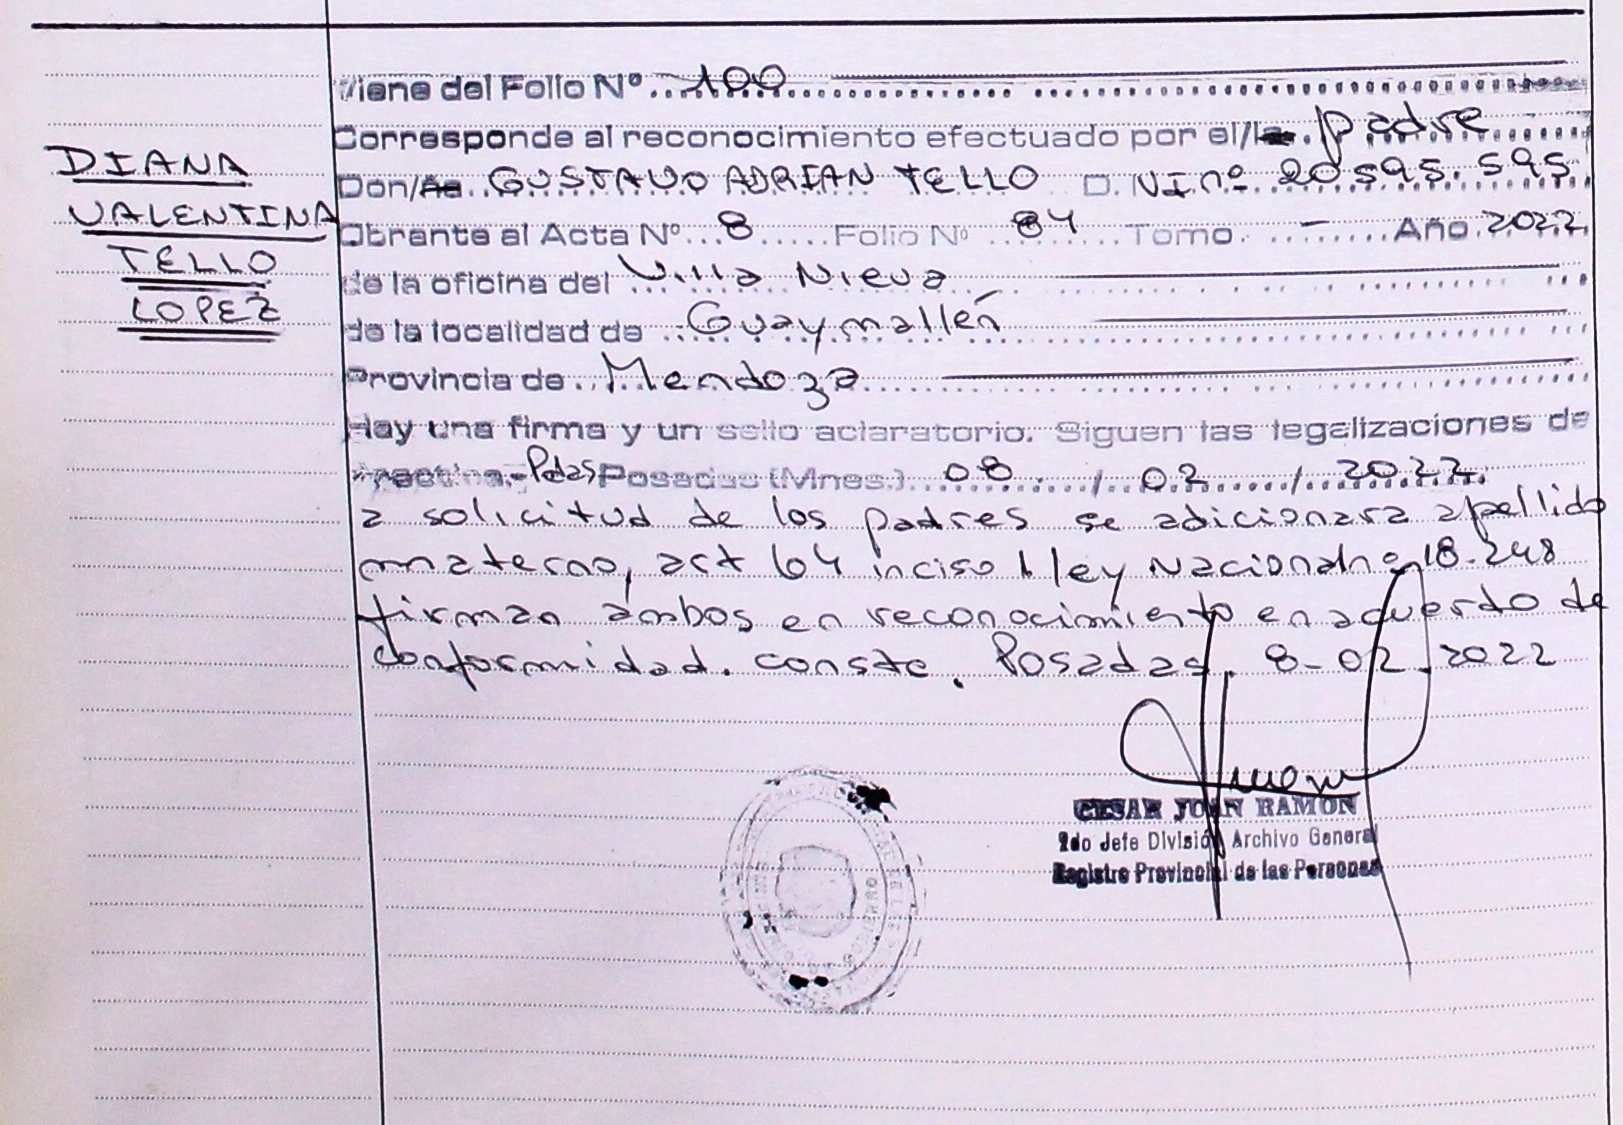 Viene del Folio Nº 100
Corresponde al reconocimiento efectuado por el/la padre
DIANA
VALENTINA
TELLO
LOPEZ
Don/ña GUSTAVO ADRIAN TELLO D.NI nº 20595.595
Obrante al Acta Nº 8 Folio Nº 84 Tomo - Año 2022
de la oficina del Villa Nieva
de la localidad de Guaymallén
Provincia de Mendoza
Hay una firma y un sello aclaratorio. Siguen las legalizaciones de
Pdas Posadas (Mnes.) 08 / 02 / 2022
a solicitud de los padres se adicionara apellido
materno, art 64 inciso 1 ley Nacional nº 18.248
firman ambos en reconocimiento en acuerdo de
conformidad. conste. Posadas. 8-02-2022
CESAR JUAN RAMON
2do Jefe División Archivo General
Registro Provincial de las Personas